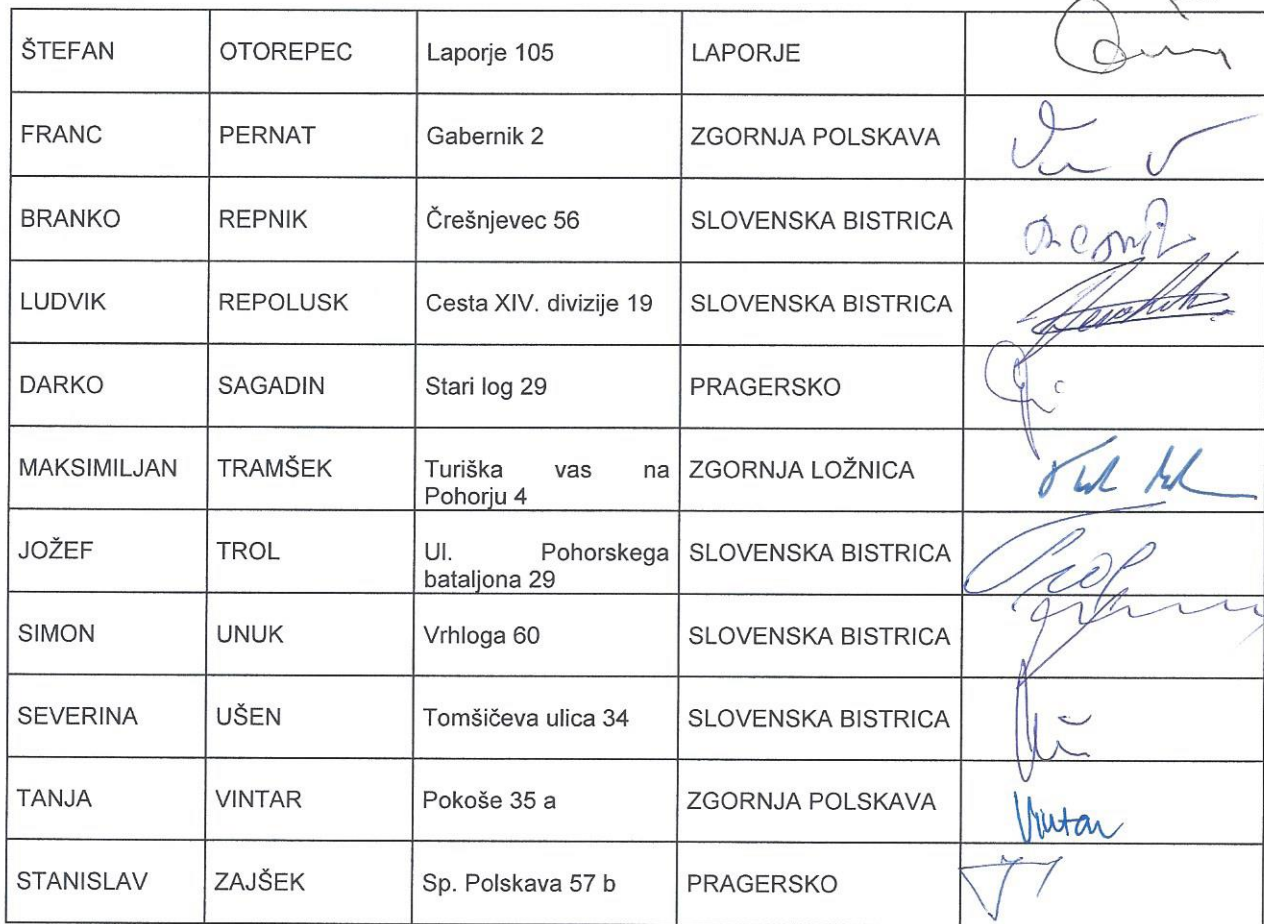 ŠTEFAN OTOREPEC Laporje 105 LAPORJE
FRANC PERNAT Gabernik 2 ZGORNJA POLSKAVA
BRANKO REPNIK Črešnjevec 56 SLOVENSKA BISTRICA
LUDVIK REPOLUSK Cesta XIV. divizije 19 SLOVENSKA BISTRICA
DARKO SAGADIN Stari log 29 PRAGERSKO
MAKSIMILJAN TRAMŠEK Turiška vas na ZGORNJA LOŽNICA
Pohorju 4
JOŽEF TROL Ul. Pohorskega SLOVENSKA BISTRICA
bataljona 29
SIMON UNUK Vrhloga 60 SLOVENSKA BISTRICA
SEVERINA UŠEN Tomšičeva ulica 34 SLOVENSKA BISTRICA
TANJA VINTAR Pokoše 35 a ZGORNJA POLSKAVA Vintar
STANISLAV ZAJŠEK Sp. Polskava 57 b PRAGERSKO